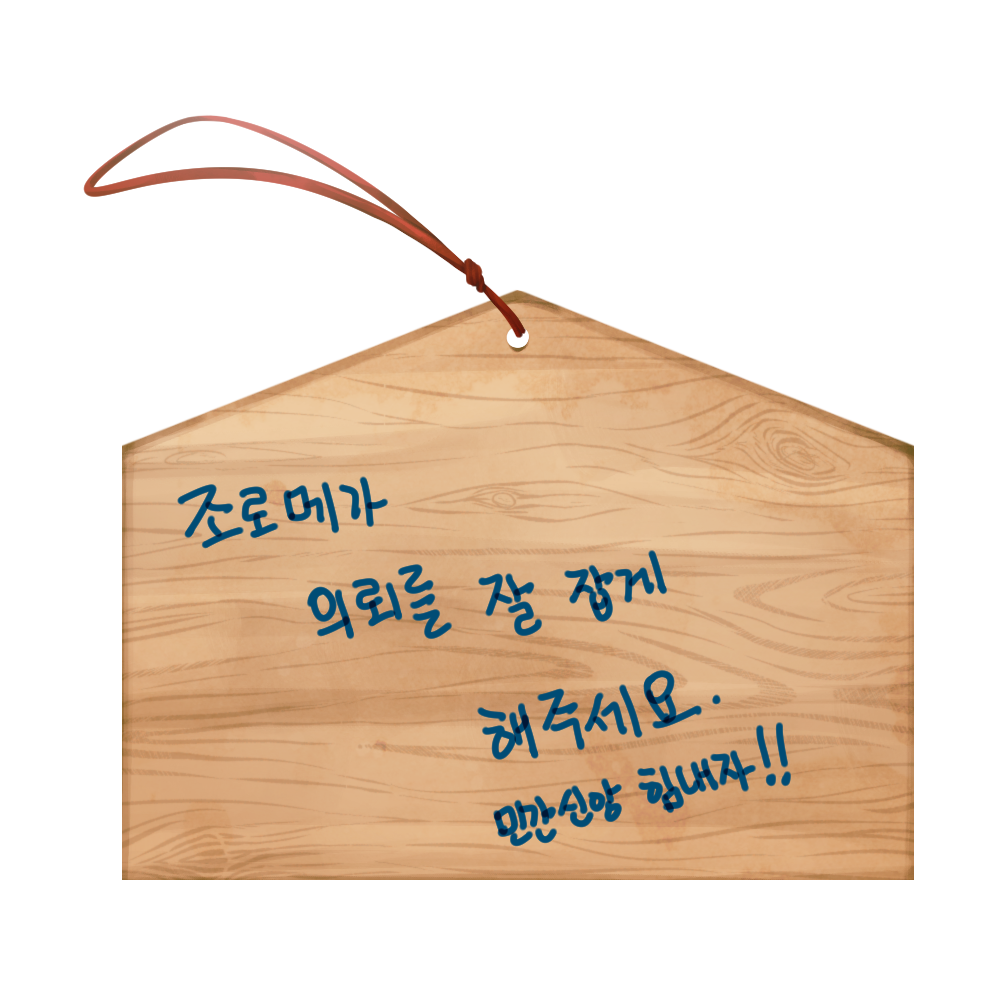 조로메가
의뢰를 잘 잡게
해주세요.
민간신앙 힘내자!!